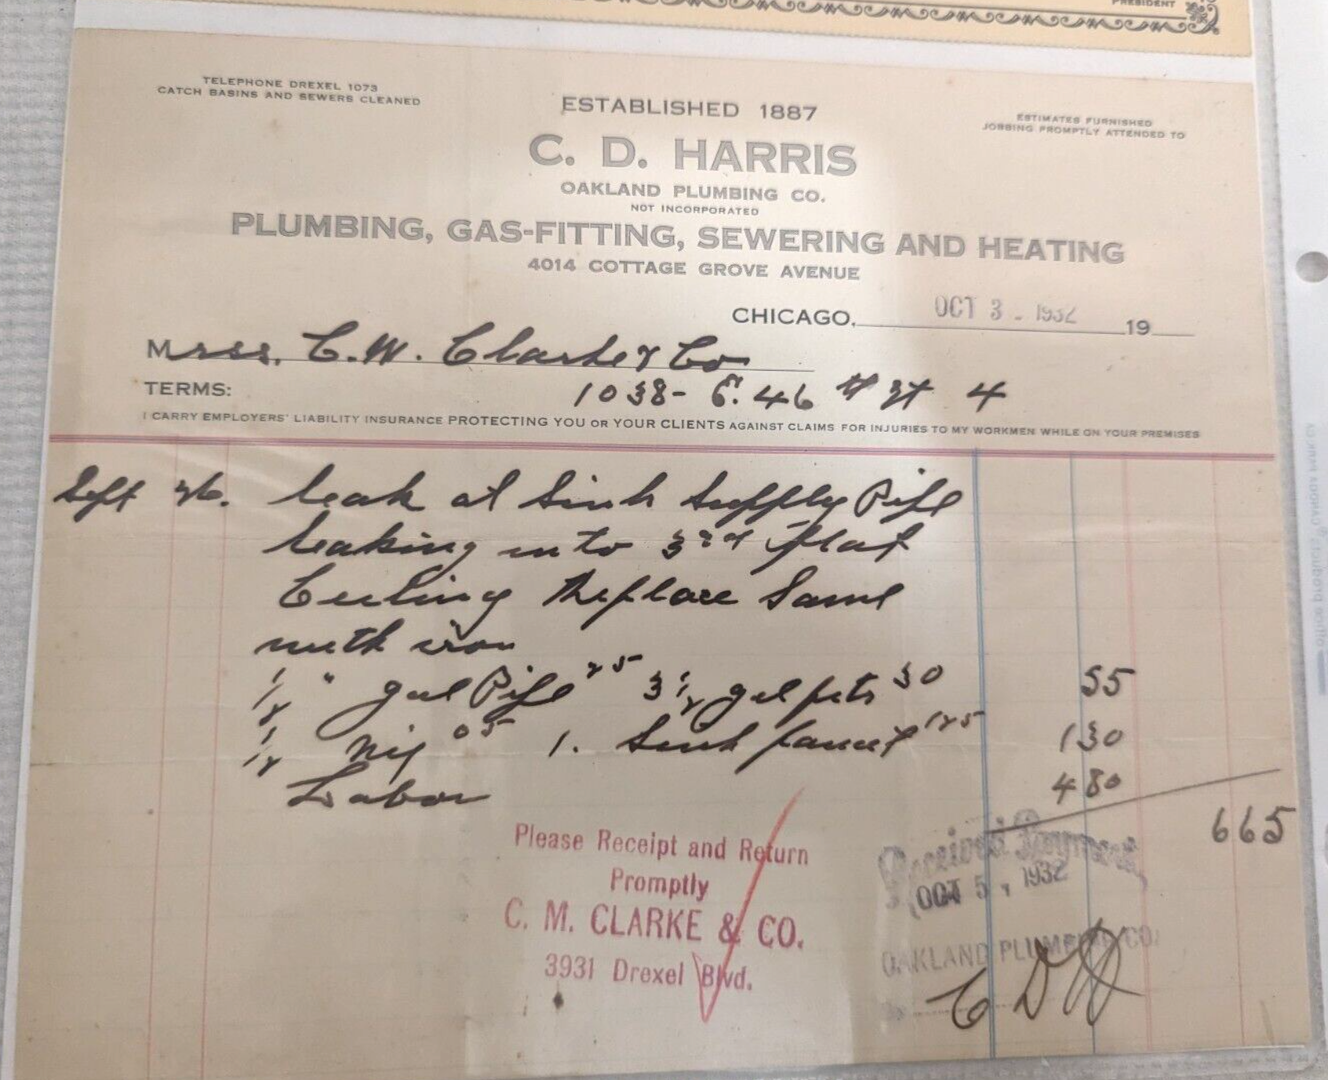 PRESIDENT
TELEPHONE DREXEL 1073
CATCH BASINS AND SEWERS CLEANED
ESTABLISHED 1887
ESTIMATES FURNISHED
JOBBING PROMPTLY ATTENDED TO
C. D. HARRIS
OAKLAND PLUMBING CO.
NOT INCORPORATED
PLUMBING, GAS-FITTING, SEWERING AND HEATING
4014 COTTAGE GROVE AVENUE
CHICAGO, OCT 3 - 1932 19
Mrss. C. M. Clarke & Co
TERMS: 1038 - E. 46 # st 4
I CARRY EMPLOYERS' LIABILITY INSURANCE PROTECTING YOU OR YOUR CLIENTS AGAINST CLAIMS FOR INJURIES TO MY WORKMEN WHILE ON YOUR PREMISES
Sept 26. leak at Sink Supply Pipe
leaking into 3rd flat
Ceiling Replace Same
with iron
1/2 " gal Pipe 25 3 1/2 gal fits 30 55
1/2 Nip 05 1. Sink faucet 125 130
Labor 480
665
Please Receipt and Return
Promptly
C. M. CLARKE & CO.
3931 Drexel Blvd.
Received Payment
OCT 5 , 1932
OAKLAND PLUMBING CO.
C D H